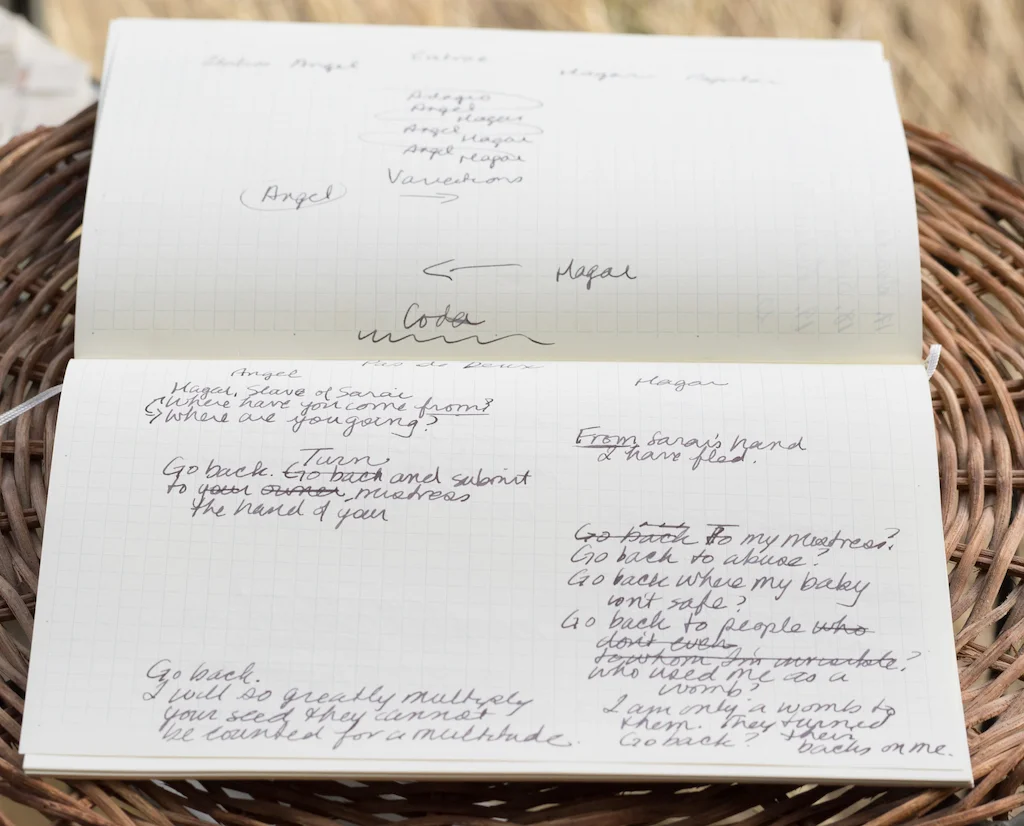 Angel
Entree
Hagar
Adagio
Angel
Hagar
Angel
Hagar
Angel Hagar
Variations
Angel
Hagar
Coda
Pas de Deux
Angel
Hagar
Hagar, Slave of Sarai
Where have you come from?
Where are you going?
From Sarai's hand
I have fled.
Turn
Go back. Go back and submit
to your owner mistress
the hand of your
Go back To my mistress?
Go back to abuse?
Go back where my baby
isn't safe?
Go back to people who
don't even
to whom I'm invisible?
who used me as a
womb?
Go back.
I will so greatly multiply
your seed they cannot
be counted for a multitude.
I am only a womb to
them. They turned
their
Go back? backs on me.